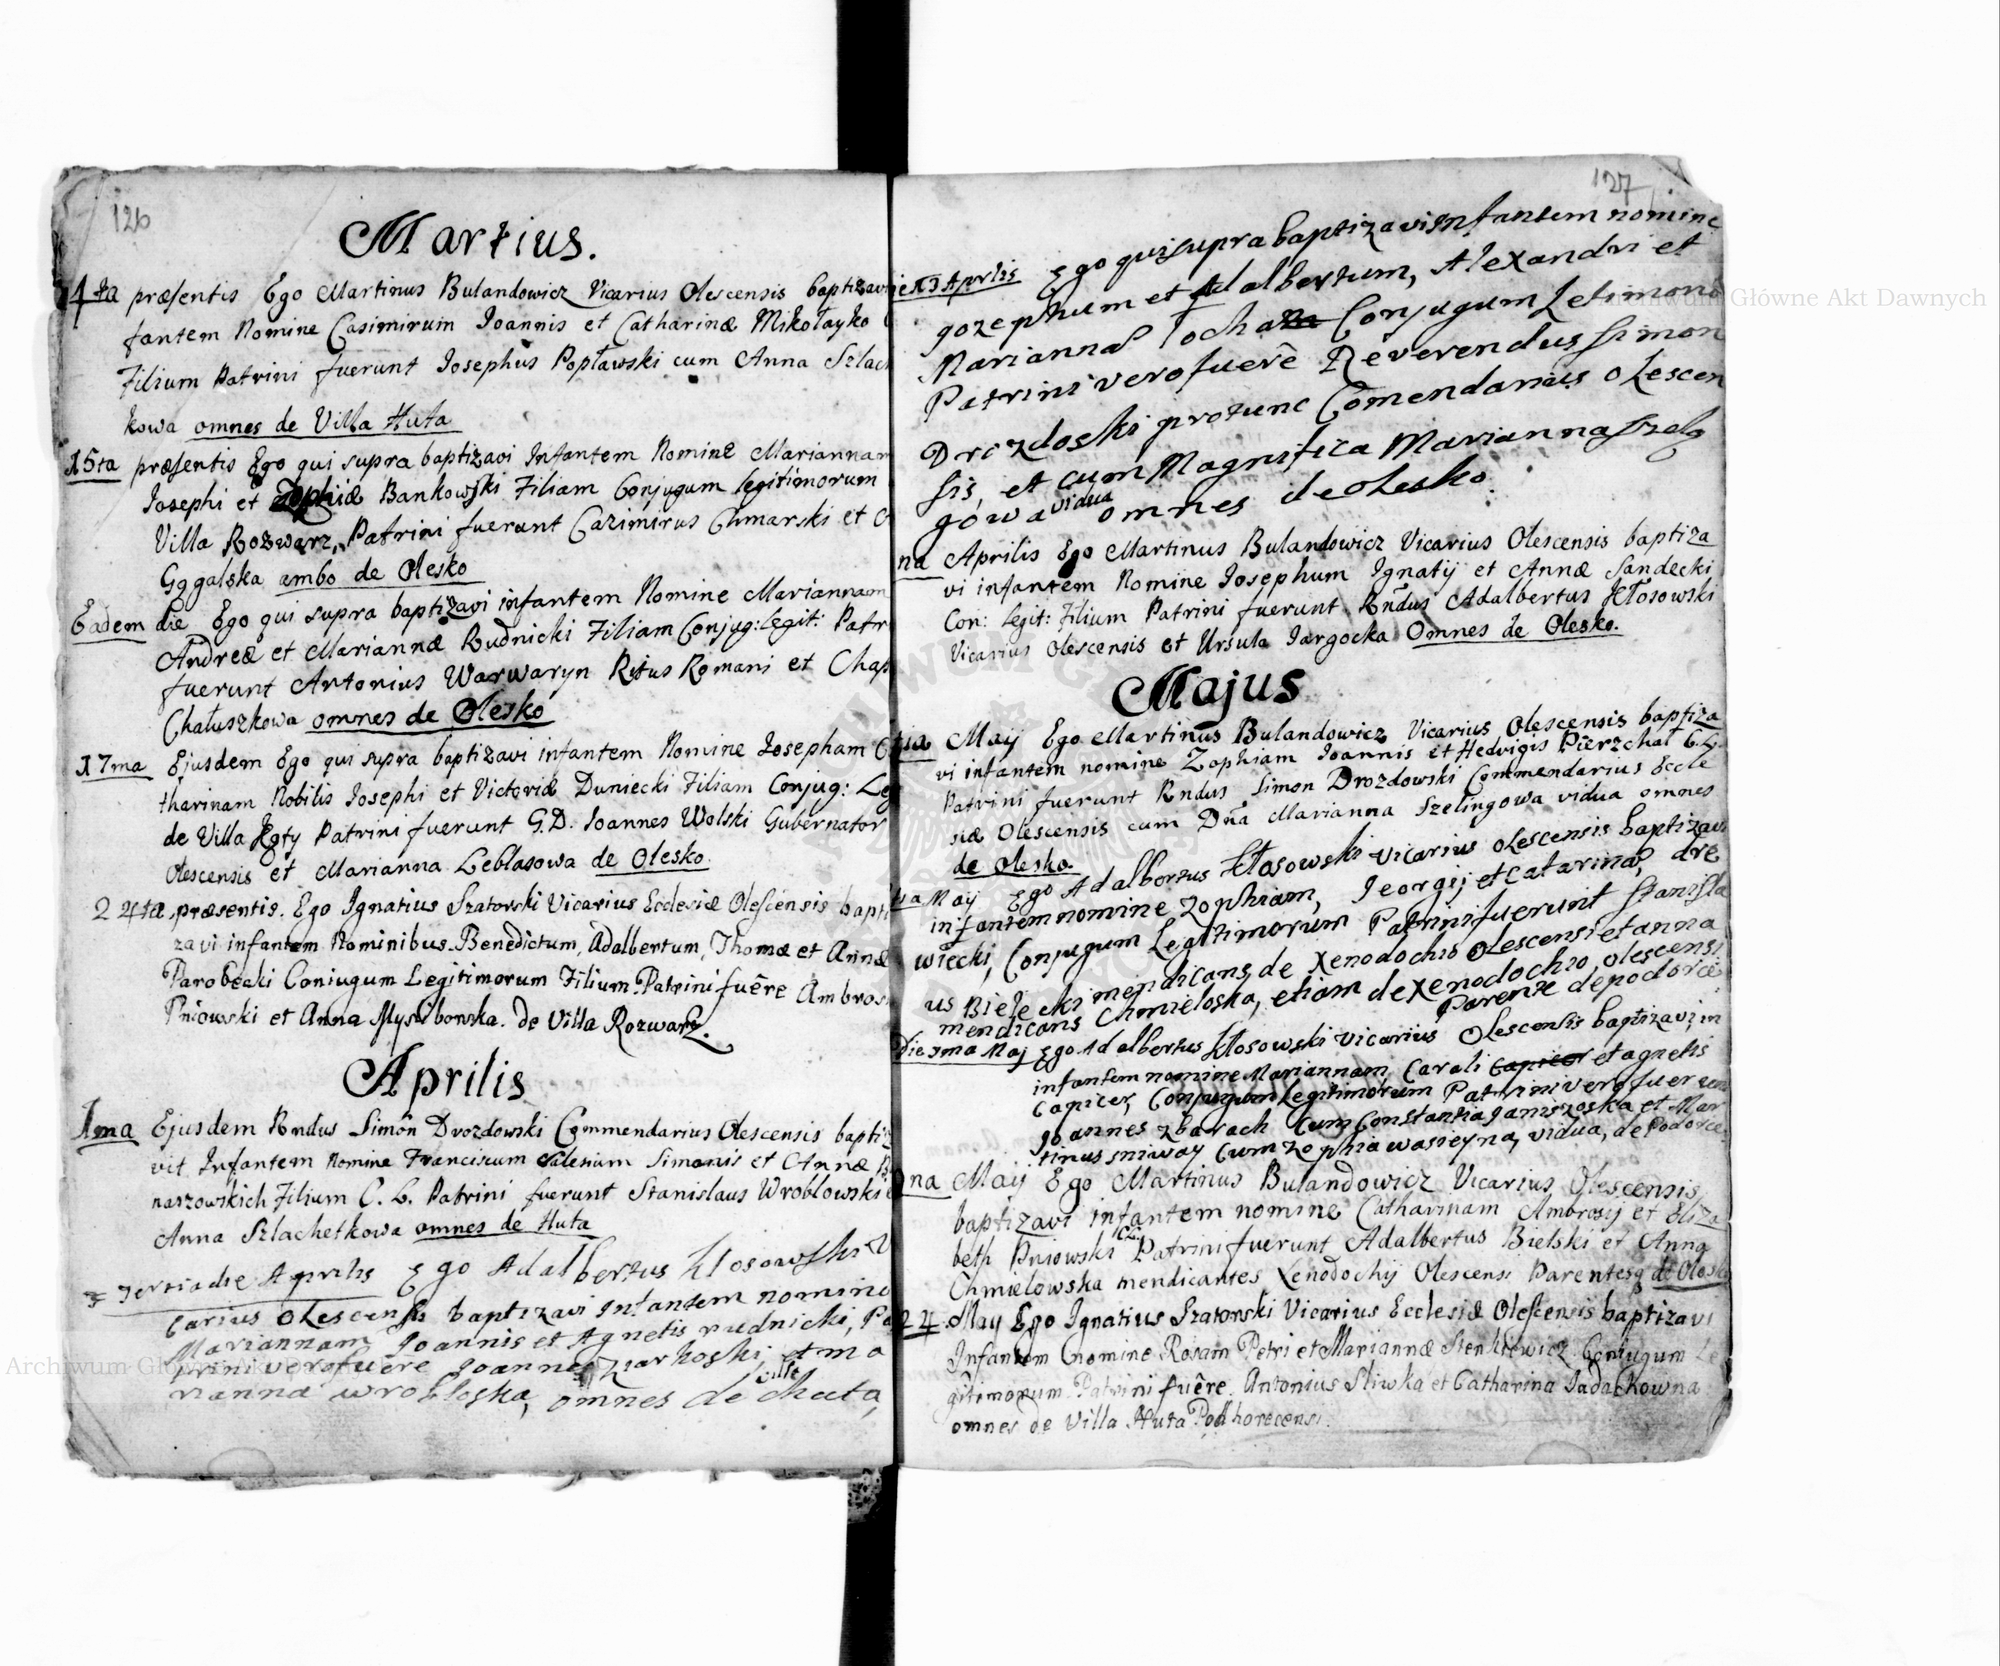 126
Martius.
14ta præsentis Ego Martinus Bulandowicz Vicarius Olescensis baptizavi
fantem Nomine Casimirum Joannis et Catharinæ Mikołayko
Filium Patrini fuerunt Josephus Popławski cum Anna Szlach
kowa omnes de Villa Huta
15ta præsentis Ego qui supra baptizavi Infantem Nomine Mariannam
Josephi et Zophiæ Bankowski Filiam Conjugum legitimorum
Villa Rozwarz, Patrini fuerunt Cazimirus Chmarski et
Gggalska ambo de Olesko
Eadem die Ego qui supra baptizavi infantem Nomine Mariannam
Andreæ et Mariannæ Rudnicki Filiam Conjug: legit: Patr
fuerunt Antonius Warwaryn Ritus Romani et Chap
Chałuszkowa omnes de Olesko
17ma Ejusdem Ego qui supra baptizavi infantem Nomine Josepham
tharinam Nobilis Josephi et Victoriæ Duniecki Filiam Conjug: Leg
de Villa Kąty Patrini fuerunt G.D. Joannes Wolski Gubernator
Olescensis et Marianna Leblasowa de Olesko.
24ta præsentis. Ego Ignatius Szatorski Vicarius Ecclesiæ Olescensis bapti
zavi infantem Nominibus Benedictum, Adalbertum, Thomæ et Annæ
Parobeaki Coniugum Legitimorum Filium. Patrini fuêre Ambros
Pniowski et Anna Mysłibonska. de Villa Rozwarz.
Aprilis
1ma Ejusdem Rndus Simôn Drozdowski Commendarius Olescensis bapti
vit Infantem Nomine Franciscum Salesium Simonis et Annæ
naszowskich Filium C. L. Patrini fuerunt Stanislaus Wroblowski
Anna Szlachetkowa omnes de Huta
Tertia die Aprilis Ego Adalbertus Kłosowski V
carius Olescensis baptizavi Infantem nomine
Mariannam Joannis et Agnetis rudnicki, Pa
trini vero fuêre Joannes Ziarkoski, et ma
rianna wrobloska, omnes de villæ chuta,
127
13 Aprilis Ego qui supra baptizavi Infantem nomine
gozephum et Adalbertum, Alexandri et
Mariannæ Tocha Conjugum Letimoru
Patrini vero fuerê Reverendus Simon
Drozdoski protunc Comendarius Olescen
sis, et cum Magnifica Marianna Szelą
gowa vidua omnes de Olesko.
na Aprilis Ego Martinus Bulandowicz Vicarius Olescensis baptiza
vi infantem Nomine Josephum Ignatij et Annæ Sandecki
Con: legit: Filium Patrini fuerunt Rndus Adalbertus Kłosowski
Vicarius Olescensis et Ursula Jargocka Omnes de Olesko.
Majus
tia Maij Ego Martinus Bulandowicz Vicarius Olescensis baptiza
vi infantem nomine Zophiam Joannis et Hedvigis Pierzchał C.L.
Patrini fuerunt Rndus Simon Drozdowski Commendarius Eccle
siæ Olescensis cum Dña Marianna Szelingowa vidua omnes
de Olesko.
tia Maij Ego Adalbertus Kłosowski vicarius Olescensis baptizavi
infantem nomine zophiam, Jeorgij et Catarinæ, dre
wiecki, Conjugum Legitimorum Patrini fuerunt Stanisla
us Bielecki mendicans de Xenodochio Olescensi et anna
mendicans Chmieloska, etiam de xenodochio olescensi
Parente de podorce
Die 7ma Maj Ego Adalbertus Kłosowski vicarius Olescensis baptizavi, in
infantem nomine Mariannam, Caroli Capicer et agnetis
Capicer, Conjugum Legitimorum Patrini vero fuerunt
Joannes zbarach Cum Constantia Janiszoska et Mar
tinus sniwoy Cum zophia wasieyna, vidua, de Podorce
na Maij Ego Martinus Bulandowicz Vicarius Olescensis
baptizavi infantem nomine Catharinam Ambrosij et Eliza
beth Pniowski C.L. Patrini fuerunt Adalbertus Bielski et Anna
Chmielowska mendicantes Xenodochij Olescens: Parentesq de Olesko
24. May Ego Ignatius Szatorski Vicarius Ecclesiæ Olescensis baptizavi
Infantem nomine Rosam Petri et Mariannæ Stenkiewicz Coniugum Le
gitimorum. Patrini fuêre. Antonius Sliwka et Catharina Jadackowna
omnes de Villa Huta Podhorecensi.
Archiwum Główne Akt Dawnych
Archiwum Główne Akt Dawnych